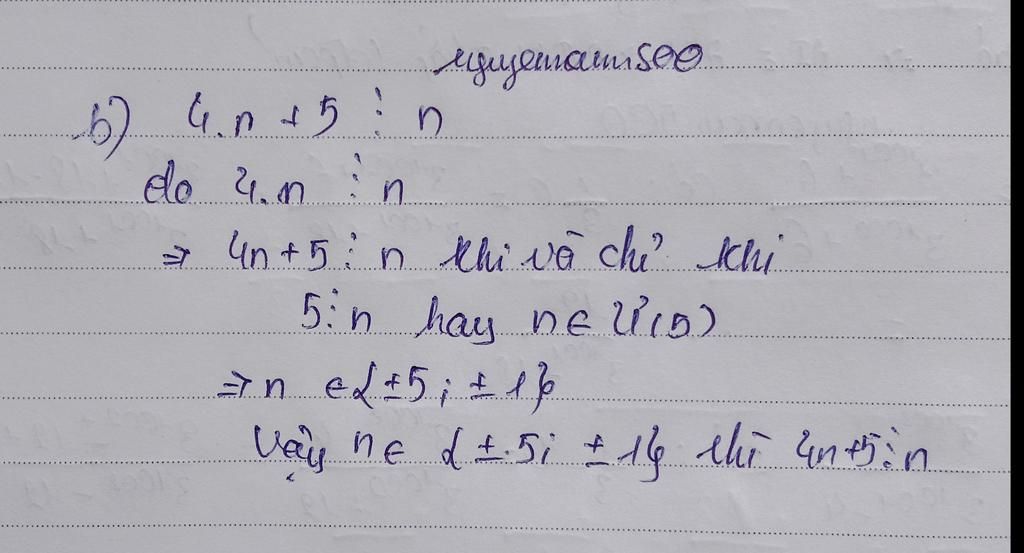 nguyenaum500
b) 4.n + 5 ⋮ n
do 4.n ⋮ n
⇒ 4n+5 ⋮ n khi và chỉ khi
5 ⋮ n hay n ∈ Ư(5)
⇒ n ∈ {±5; ±1}
Vậy n ∈ {±5; ±1} thì 4n+5 ⋮ n